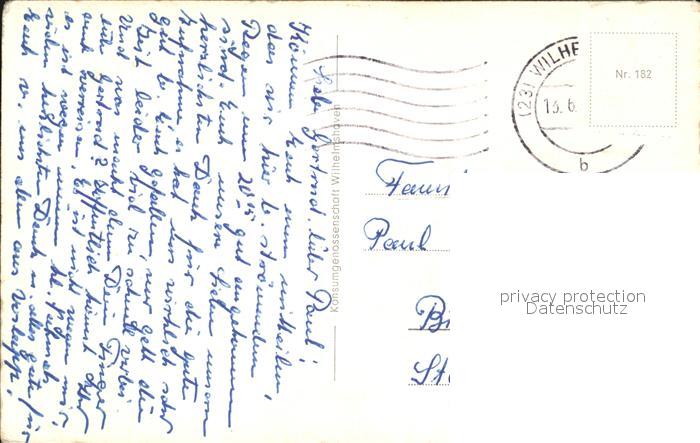 Liebe Gertrud, lieber Paul!
Können Euch nun mitteilen,
das wir hier b. strömenden
Regen um 20 15 gut angekommen
sind. Euch unsere lieben unsern
herzlichsten Dank für die gute
Aufnahme, es hat uns wirklich sehr
gut b. Euch gefallen, nur geht die
Zeit leider viel zu schnell vorbei
Und was macht denn Dein Finger
liebe Gertrud? Hoffentlich könnt Ihr
es ist nicht wegen mir,
es ist wegen
vielen herzlichsten Dank u. alles gute für
Euch u. uns allen aus
Konsumgenossenschaft Wilhelmshaven
(23) WILHE
13.6
b
Nr. 182
Fami
Paul
Bi
St
privacy protection
Datenschutz